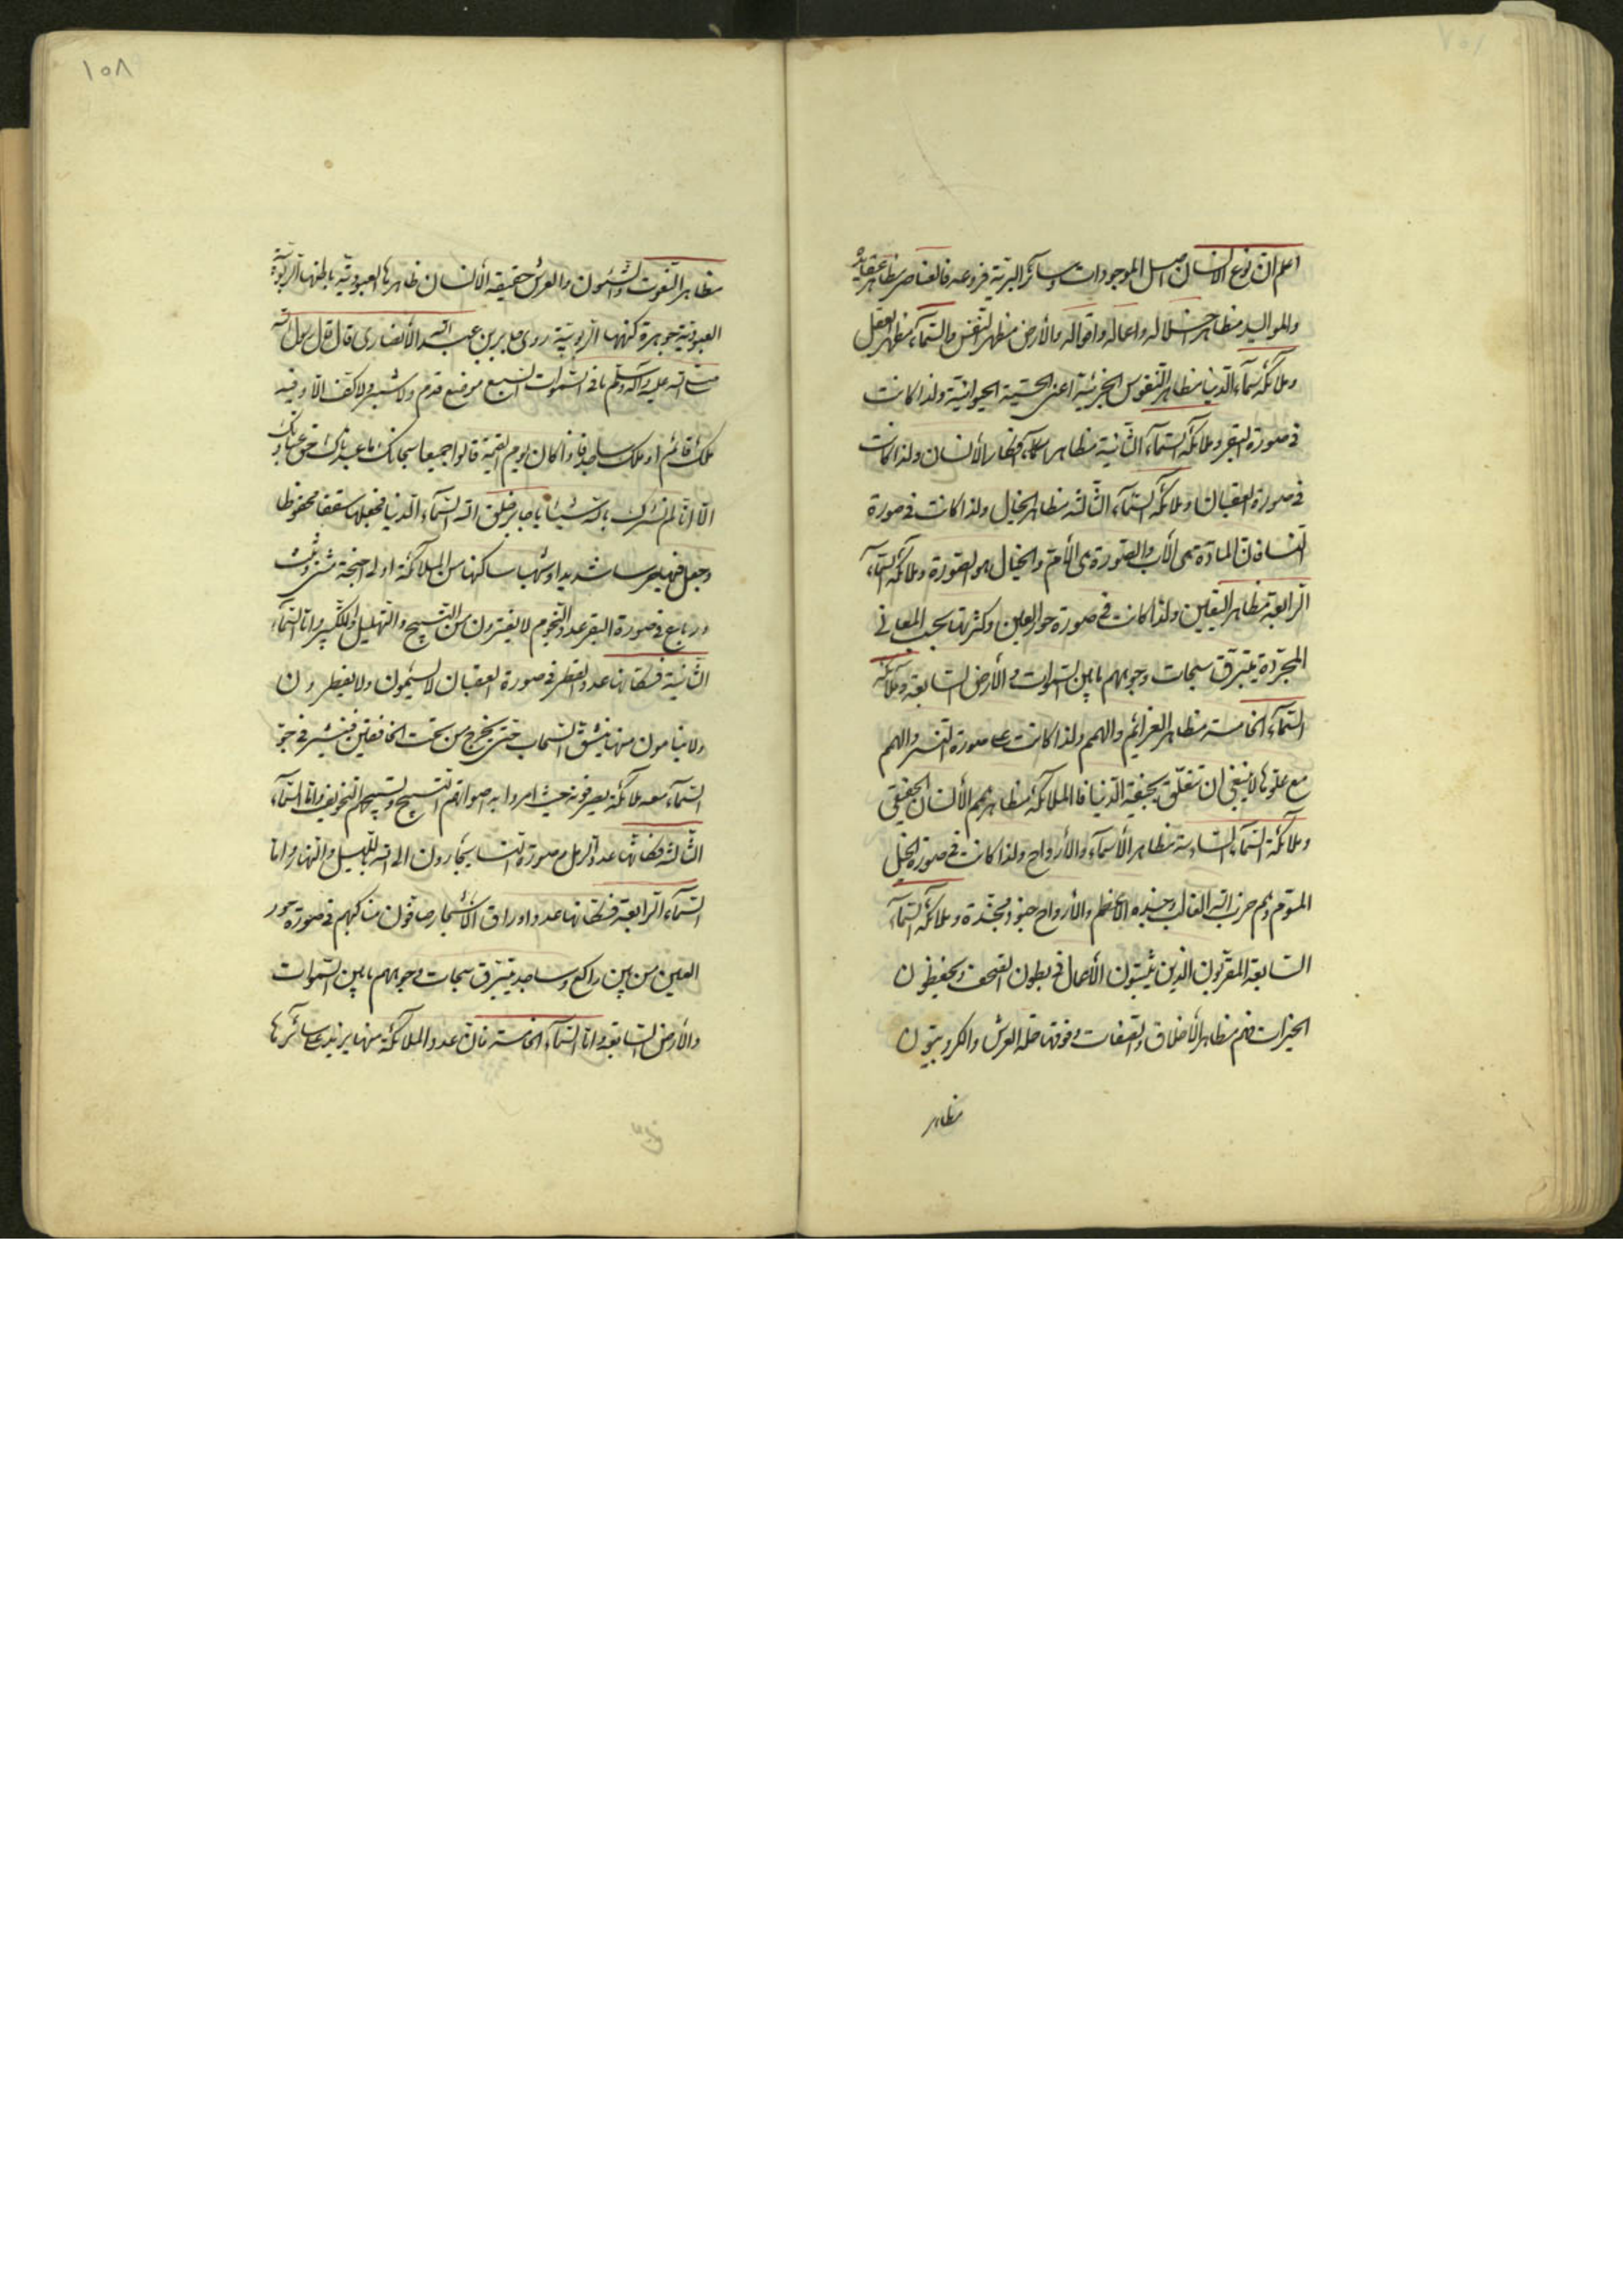 ١٠٧
اعلم ان نوع الانسان اصل الموجودات وسائر البرية فروعه فالعناصر مظاهر عقايده
والمواليد مظاهر خلاله واعماله واقواله والأرض مظهر النفس والسمآء مظهر العقل
وملائكة سمآء الدنيا مظاهر النفوس الجزئية اعنى الحسية الحيوانية ولذا كانت
فى صورة البقر وملائكة السمآء الثانية مظاهر افكار الأنسان ولذا كانت
فى صورة العقبان وملائكة السمآء الثالثة مظاهر الخيال ولذا كانت فى صورة
النسا فان المادة هى الأب والصورة هى الأم والخيال هو الصورة وملائكة السمآء
الرابعة مظاهر اليقين ولذا كانت فى صورة حور العين وكثرتها بحسب المعانى
المجردة يتبرق سبحات وجوههم ما بين السموات والأرض السابعة وملائكة
السمآء الخامسة مظاهر العزائم والهمم ولذا كانت على صورة النسر والهمم
مع علوها لا ينبغى ان تتعلق بجيفة الدنيا فالملائكة مظاهر همم الأنسان الحقيقى
وملائكة السمآء السادسة مظاهر الأسمآء والأرواح ولذا كانت فى صورة الخيل
المسومة وهم حزب الله الغالب وجنده الأعظم والأرواح جنود مجندة وملائكة السمآء
السابعة المقربون الذين يثبتون الأعمال فى بطون الصحف ويحفظون
الخيرات فهم مظاهر الأخلاق والصفات وفوقها حملة العرش والكروبيون
مظاهر
١٠٨
مظاهر النعوت والشئون والعرش حقيقة الأنسان ظاهرها العبودية باطنها الربوبية
العبودية جوهرة كنهها الربوبية روى جابر بن عبد الله الأنصارى قال قال رسول الله
صلى الله عليه وآله وسلم ما فى السموات السبع موضع قدم ولا شبر ولا كف الا وفيه
ملك قائم او ملك ساجد فاذا كان يوم القيمة قالوا جميعا سبحانك ما عبدناك حق عبادتك
الا انا لم نشرك بك شيئا يا جابر خلق الله السمآء الدنيا فجعلها سقفا محفوظا
وجعل فيها حرسا شديدا وشهبا ساكنها من الملائكة اولى اجنحة مثنى وثلث
ورباع فى صورة البقر عدد النجوم لا يفترون من التسبيح والتهليل والتكبير واما السمآء
الثانية فسكانها عدد القطر فى صورة العقبان لا يسئمون ولا يفطرون
ولا ينامون منها ينشق السحاب حتى يخرج من تحت الخافقين فينتشر فى جو
السمآء معه ملائكة يصرفونه حيث امروا به اصواتهم التسبيح وتسبيحهم التخويف واما السمآء
الثالثة فسكانها عدد الرمل فى صورة النسا يجأرون الى الله بالليل والنهار واما
السمآء الرابعة فسكانها عدد اوراق الأشجار صافون مناكبهم فى صورة حور
العين من بين راكع وساجد يتبرق سبحات وجوههم ما بين السموات
والأرض السابعة واما السمآء الخامسة فان عدد الملائكة منها يزيد على سائرها